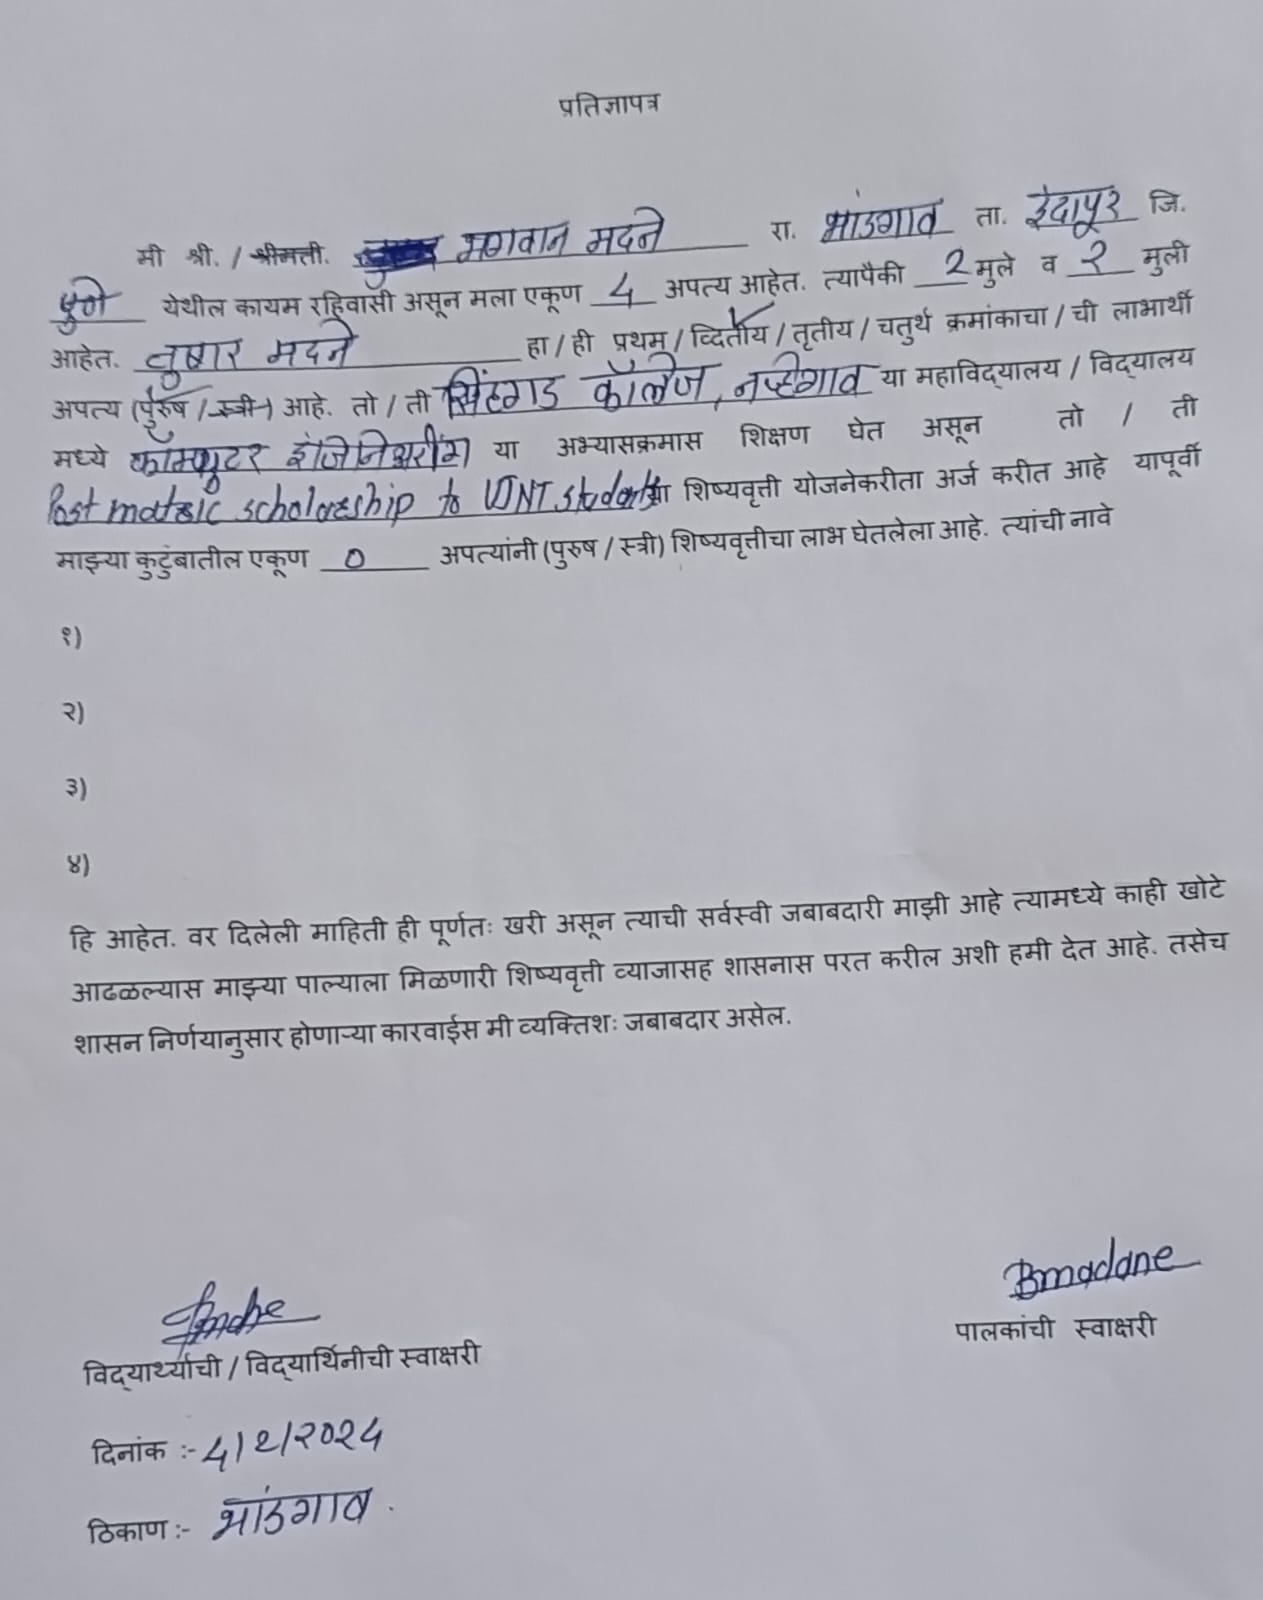 प्रतिज्ञापत्र
मी श्री. / श्रीमती. भगवान मदने रा. भांडगाव ता. इंदापूर जि.
पुणे येथील कायम रहिवासी असून मला एकूण 4 अपत्य आहेत. त्यापैकी 2 मुले व २ मुली
आहेत. तुषार मदने हा / ही प्रथम / व्दितीय / तृतीय / चतुर्थ क्रमांकाचा / ची लाभार्थी
अपत्य (पुरुष / स्त्री) आहे. तो / ती सिंहगड कॉलेज, नऱ्हेगाव या महाविद्यालय / विद्यालय
मध्ये कॉम्प्युटर इंजिनिअरींग या अभ्यासक्रमास शिक्षण घेत असून तो / ती
Post matric scholarship to VJNT students या शिष्यवृत्ती योजनेकरीता अर्ज करीत आहे यापूर्वी
माझ्या कुटुंबातील एकूण 0 अपत्यांनी (पुरुष / स्त्री) शिष्यवृत्तीचा लाभ घेतलेला आहे. त्यांची नावे
१)
२)
३)
४)
हि आहेत. वर दिलेली माहिती ही पूर्णतः खरी असून त्याची सर्वस्वी जबाबदारी माझी आहे त्यामध्ये काही खोटे
आढळल्यास माझ्या पाल्याला मिळणारी शिष्यवृत्ती व्याजासह शासनास परत करील अशी हमी देत आहे. तसेच
शासन निर्णयानुसार होणाऱ्या कारवाईस मी व्यक्तिशः जबाबदार असेल.
Bmadane
पालकांची स्वाक्षरी
विद्यार्थ्याची / विद्यार्थिनीची स्वाक्षरी
दिनांक :- 4/2/२०२4
ठिकाण :- भांडगाव.